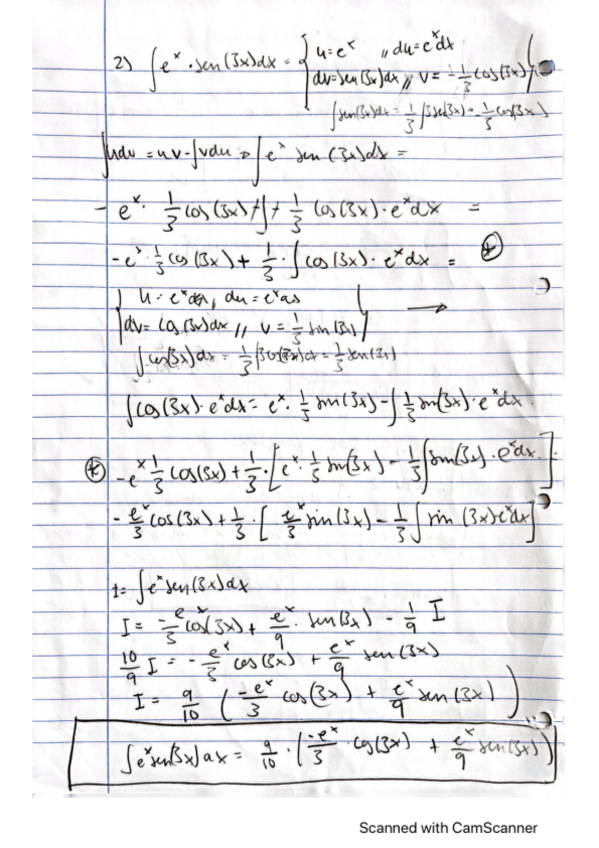 2) ∫ e^x · sen(3x)dx = { u = e^x // du = e^x dx
dv = sen(3x)dx // v = -1/3 cos(3x) }
∫sen(3x)dx = 1/3 ∫3sen(3x) = -1/3 cos(3x)
∫udv = uv - ∫vdu → ∫ e^x sen(3x)dx =
- e^x · 1/3 cos(3x) + ∫ + 1/3 cos(3x) · e^x dx =
- e^x · 1/3 cos(3x) + 1/3 · ∫ cos(3x) · e^x dx = (*)
{ u = e^x, du = e^x dx
dv = cos(3x)dx // v = 1/3 sin(3x) } →
∫cos(3x)dx = 1/3 ∫3cos(3x)dx = 1/3 sen(3x)
∫cos(3x) · e^x dx = e^x · 1/3 sin(3x) - ∫ 1/3 sin(3x) · e^x dx
(*) - e^x 1/3 cos(3x) + 1/3 · [e^x · 1/3 sin(3x) - 1/3 ∫sin(3x) · e^x dx]
- e^x/3 cos(3x) + 1/3 · [e^x/3 sin(3x) - 1/3 ∫ sin(3x) e^x dx]
I = ∫e^x sen(3x)dx
I = -e^x/3 cos(3x) + e^x/9 · sen(3x) - 1/9 I
10/9 I = - e^x/3 cos(3x) + e^x/9 sen(3x)
I = 9/10 (-e^x/3 cos(3x) + e^x/9 sen(3x))
∫e^x sen(3x)dx = 9/10 · (-e^x/3 · cos(3x) + e^x/9 sen(3x))
Scanned with CamScanner